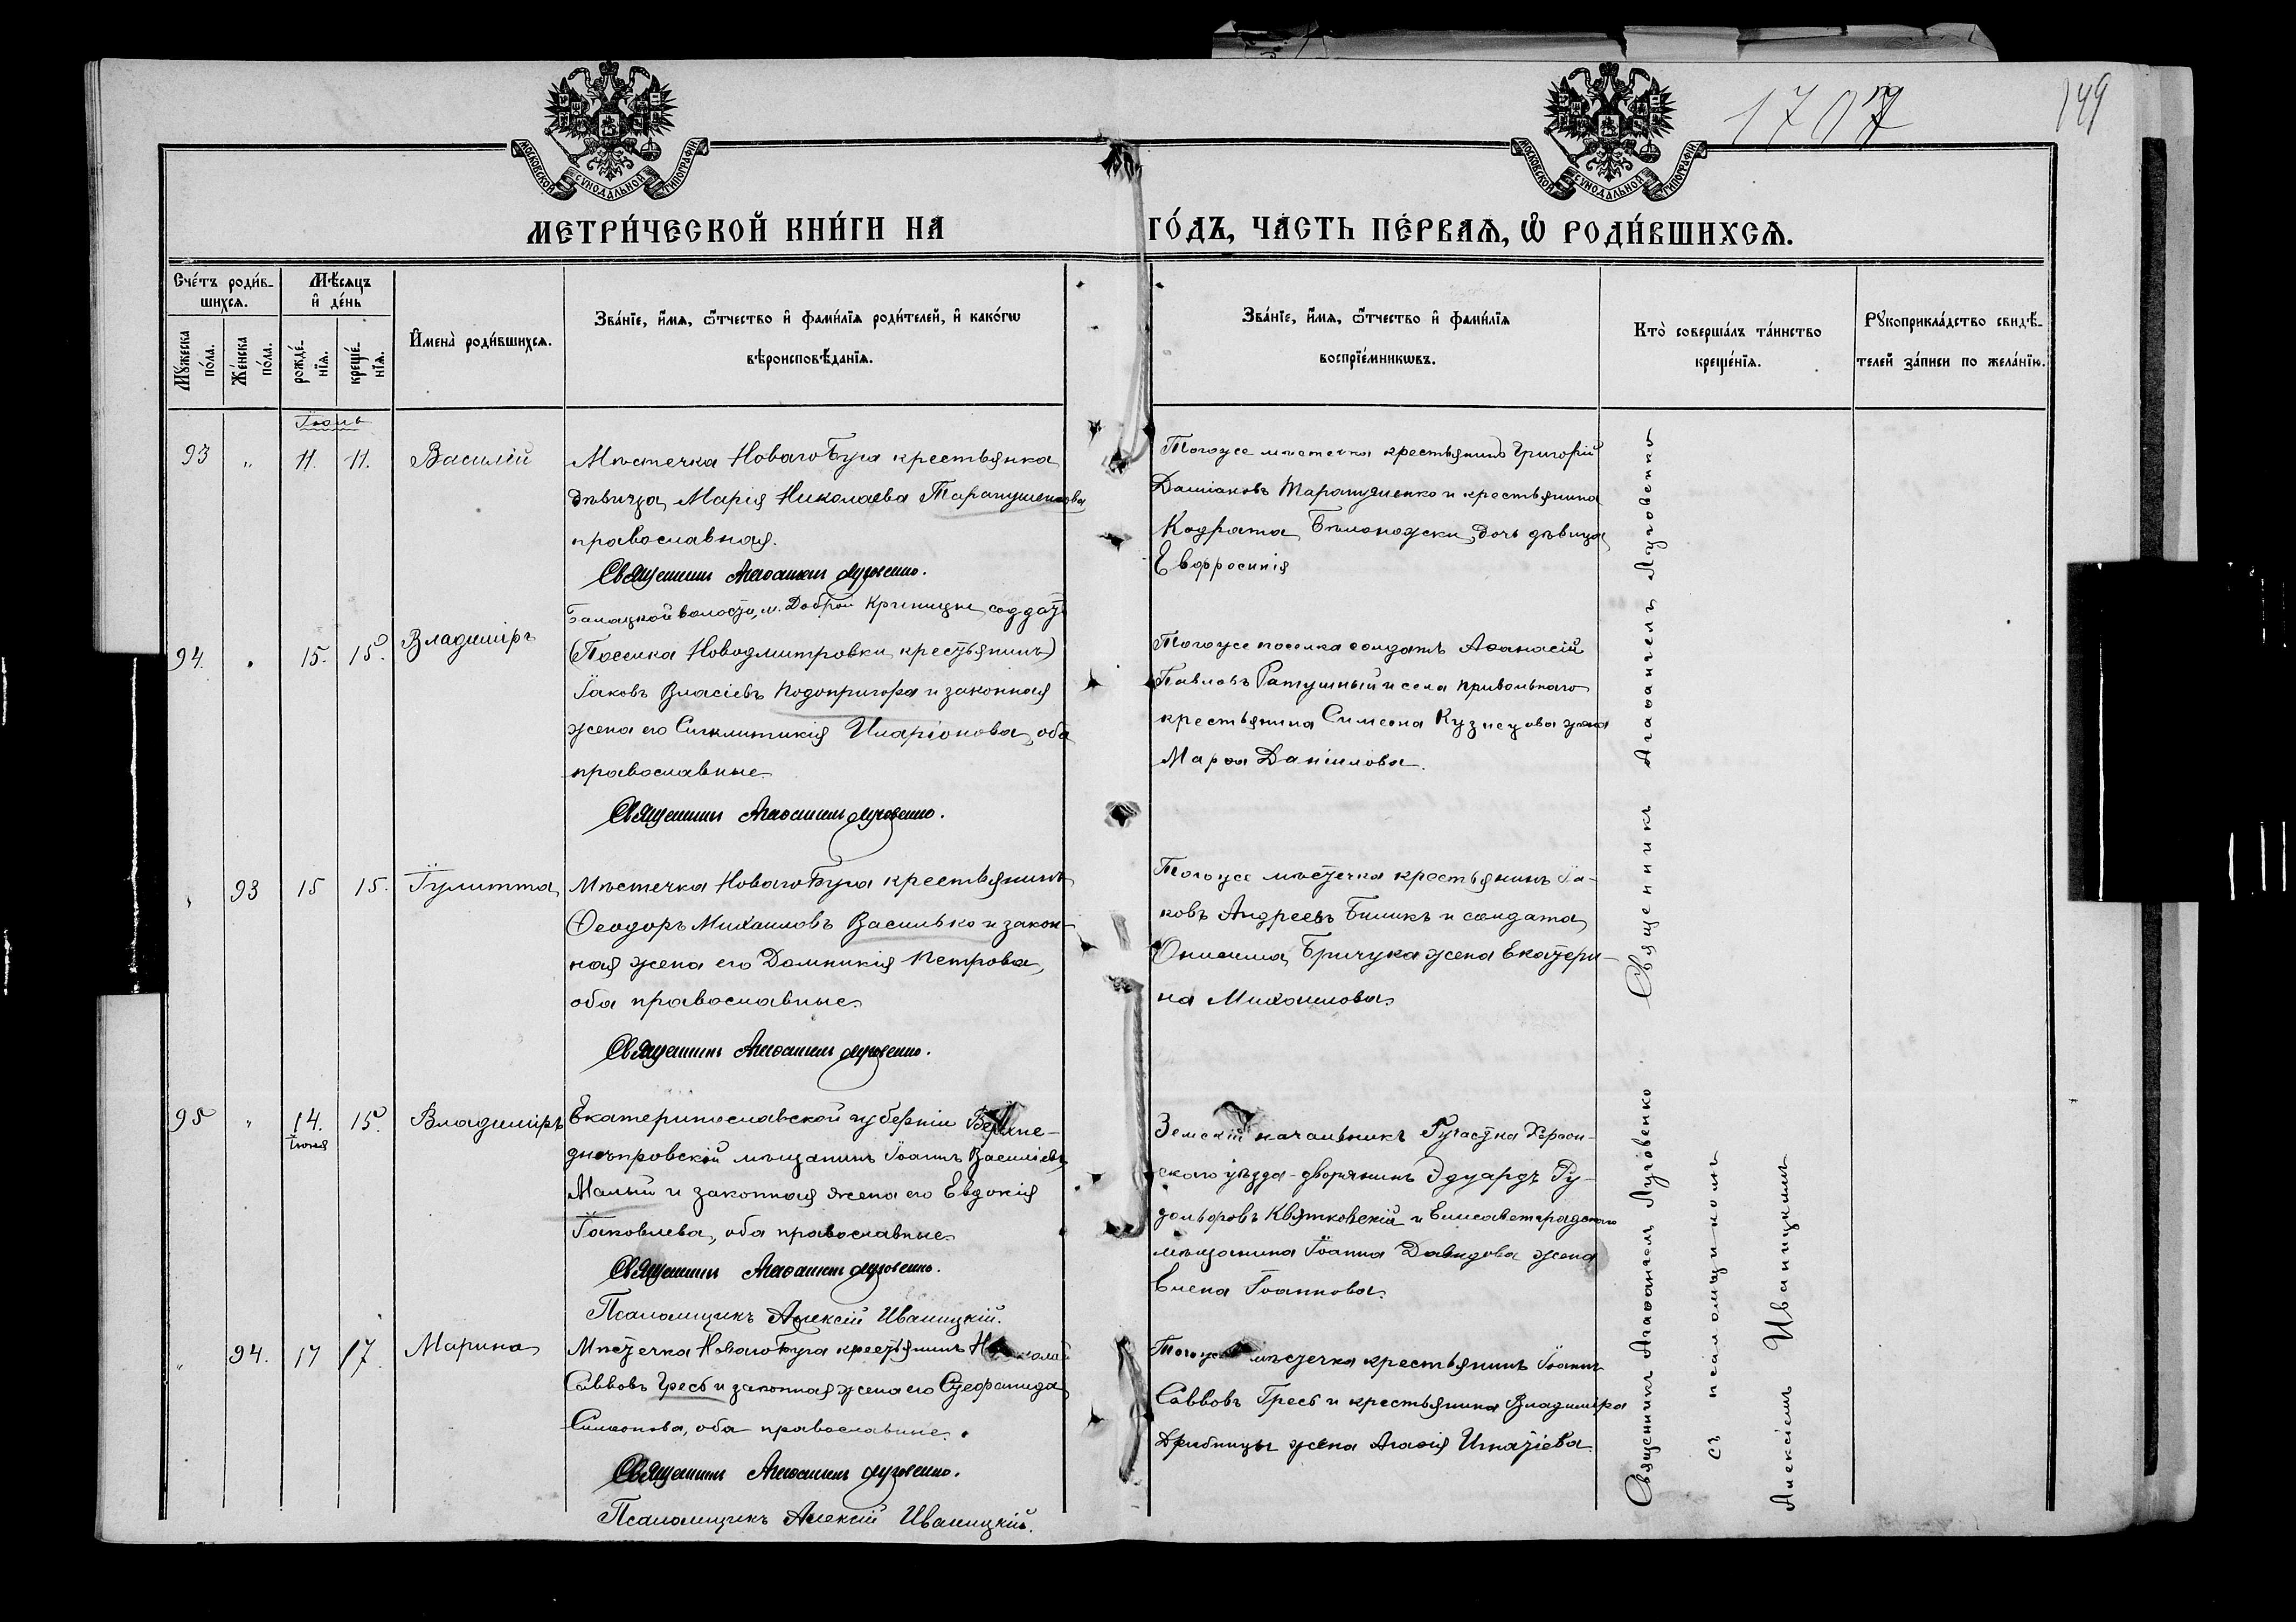 1707
149
МОСКОВСКОЙ СУНОДАЛЬНОЙ ТИПОГРАФІИ
МОСКОВСКОЙ СУНОДАЛЬНОЙ ТИПОГРАФІИ
МЕТРИ́ЧЕСКОЙ КНИ́ГИ НА ГО́ДЪ, ЧА́СТЬ ПЕ́РВАѦ, Ѡ҆ РОДИ́ВШИХСѦ.
Сче́тъ роди́в-
шихсѧ.
Мѣсѧцъ
и҆ де́нь
Мꙋжеска
по́ла.
Же́нска
по́ла.
рожде́-
нїѧ.
креще́-
нїѧ.
И҆мена̀ роди́вшихсѧ.
Зва́нїе, и҆́мѧ, ѻ҆́тчество и҆ фами́лїѧ роди́телей, и҆ како́гѡ
вѣроисповѣ́данїѧ.
Зва́нїе, и҆́мѧ, ѻ҆́тчество и҆ фами́лїѧ
воспрїе́мникѡвъ.
Кто̀ соверша́лъ та́инство
креще́нїѧ.
Рꙋкоприкла́дство свидѣ́-
телей за́писи по жела́нїю.
Іюль
93 " 11. 11. Василій
Мѣстечка Новаго Буга крестьянка
дѣвица Марія Николаева Таратушенкова
православная.
Священникъ Агаѳангелъ Луговенко.
Тогоже мѣстечка крестьянинъ Григорій
Даміановъ Таратушенко и крестьянина
Кодрата Бѣлоножски дочь дѣвица
Евфросинія
94. " 15. 15. Владиміръ
Балацкой волости, м. Доброй Криницы, солдатъ
(Поселка Новодмитровки крестьянинъ)
Іаковъ Власіевъ Подопригора и законная
жена его Синклитикія Иларіонова, оба
православные
Священникъ Агаѳангелъ Луговенко.
Тогоже поселка солдатъ Аѳанасій
Павловъ Ратушный и села Привольнаго
крестьянина Симеона Кузнецова жена
Марѳа Даніилова.
" 93 15 15. Іулитта
Мѣстечка Новаго Буга крестьянинъ
Ѳеодоръ Михаиловъ Василько и закон-
ная жена его Домникія Петрова,
оба православные.
Священникъ Агаѳангелъ Луговенко.
Тогоже мѣстечка крестьянинъ Іа-
ковъ Андреевъ Биликъ и солдата
Онисима Бричука жена Екатери-
на Михаилова.
95 " 14. 15. Владиміръ
Іюня
Екатеринославской губерніи Верхне-
днѣпровскій мѣщанинъ Іоаннъ Василіевъ
Малый и законная жена его Евдокія
Іаковлева, оба православные.
Священникъ Агаѳангелъ Луговенко.
Псаломщикъ Алексій Иваницкій.
Земскій начальникъ участка Херсон-
скаго уѣзда - дворянинъ Эдуардъ Ру-
дольфовъ Квятковскій и Елисаветградскаго
мѣщанина Іоанна Давидова жена
Елена Іоаннова.
" 94. 17 17. Марина
Мѣстечка Новаго Буга крестьянинъ Николай
Саввовъ Гресь и законная жена его Стефанида
Симеонова, оба православные.
Священникъ Агаѳангелъ Луговенко.
Псаломщикъ Алексій Иваницкій.
Тогоже мѣстечка крестьянинъ Іоаннъ
Саввовъ Гресь и крестьянина Владиміра
Дрибницы жена Агаѳія Игнатіева.
Священникъ Агаѳангелъ Луговенко
Священникъ Агаѳангелъ Луговенко
съ псаломщикомъ
Алексіемъ Иваницкимъ